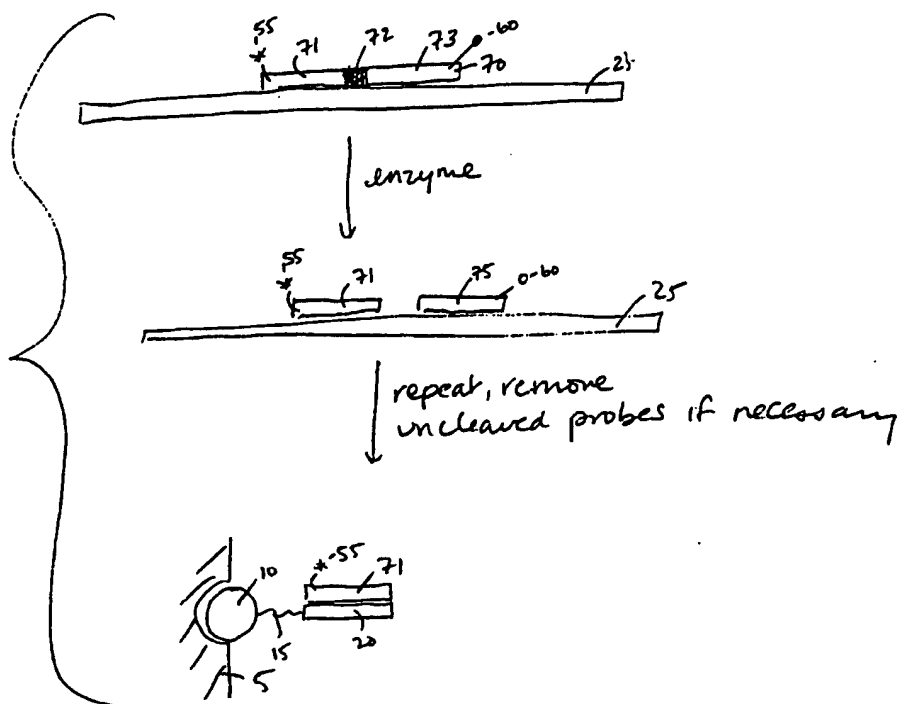 *-55
71
72
73
-60
70
25
enzyme
*-55
71
75
0-60
25
repeat, remove
uncleaved probes if necessary
10
*-55
71
15
20
5